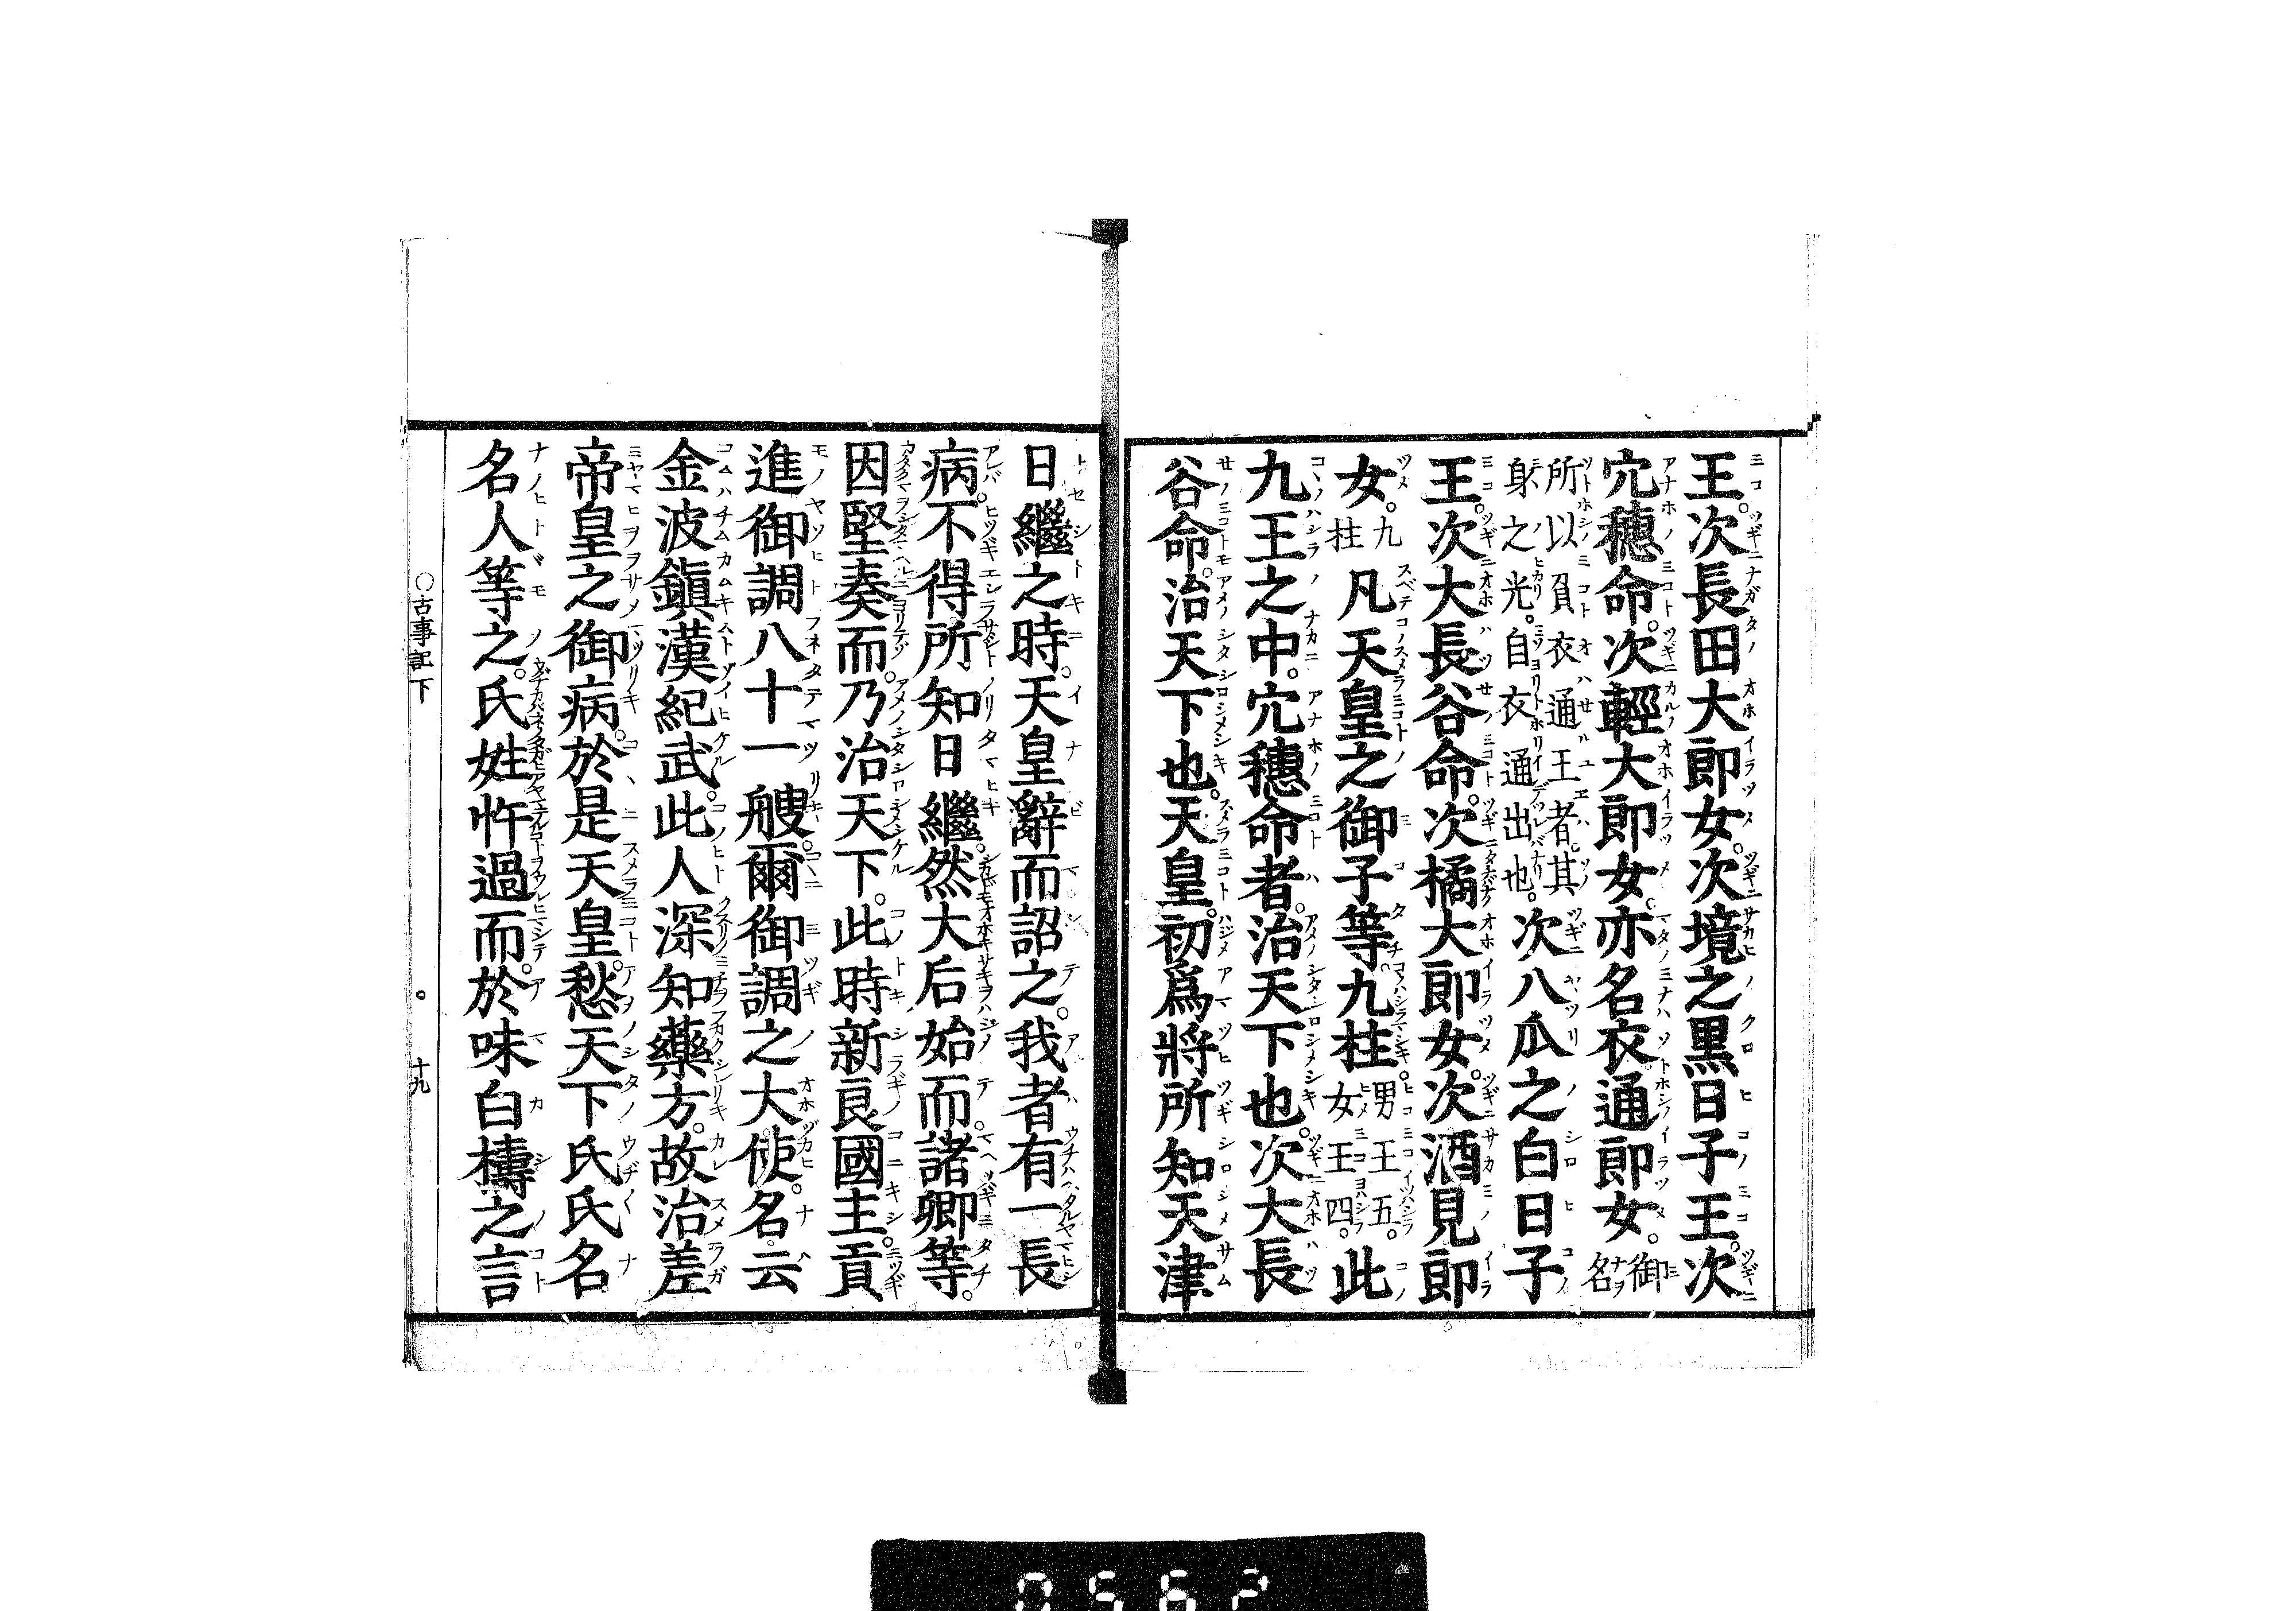 王。次長田大郎女。次境之黒日子王。次
穴穗命。次輕大郎女。亦名衣通郎女。御名
所以負衣通王者。其
身之光。自衣通出也。次八瓜之白日子
王。次大長谷命。次橘大郎女。次酒見郎
女。九柱 凡天皇之御子等。九柱。男王五。女王四。此
九王之中。穴穗命者。治天下也。次大長
谷命。治天下也。天皇。初爲將所知天津
日繼之時。天皇辭而詔之。我者有一長
病。不得所知日繼。然大后始而。諸卿等。
因堅奏而。乃治天下。此時新良國主。貢
進御調八十一艘。爾御調之大使。名云
金波鎭漢紀武。此人深知藥方。故治差
帝皇之御病。於是天皇。愁天下氏氏名
名人等之。氏姓忤過而。於味白檮之言
○古事記下 十九
0562